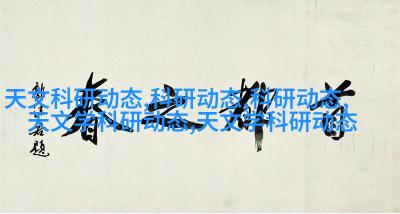 天文科研动态,科研动态,科研动态,
天文学科研动态,天文学科研动态
首都之春